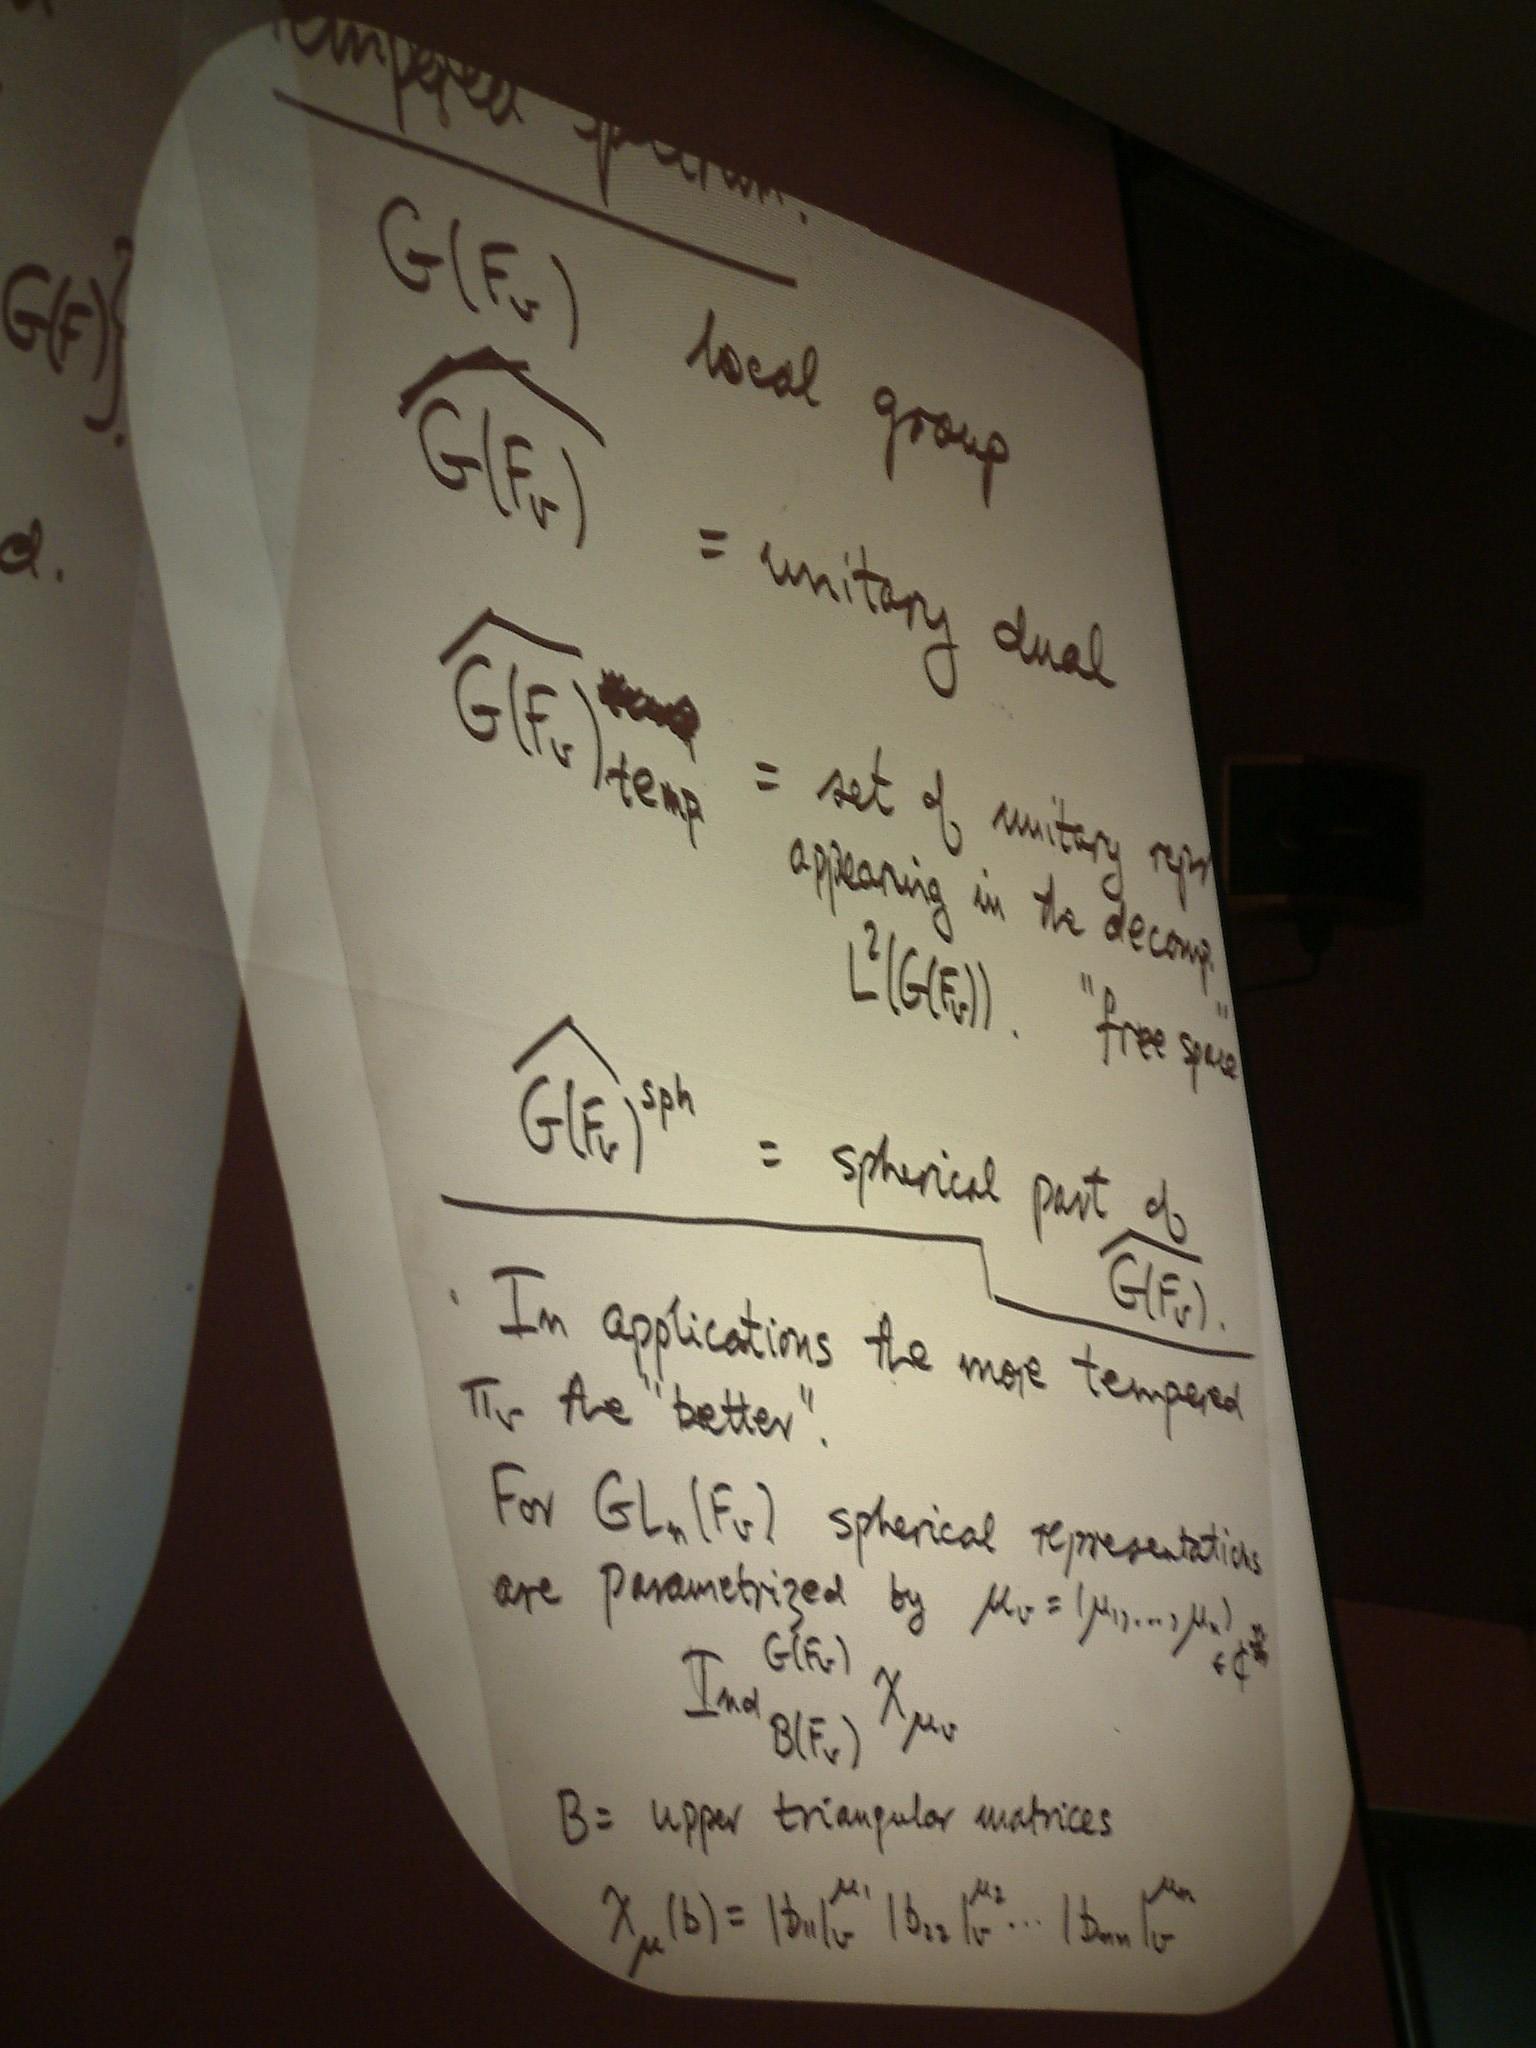 tempered spectrum.
G(F_v) local group
\widehat{G(F_v)} = unitary dual
\widehat{G(F_v)}_{temp} = set of unitary repr
appearing in the decomp.
L²(G(F_v)). "free space"
\widehat{G(F_v)}^{sph} = spherical part of
\widehat{G(F_v)}.
. In applications the more tempered
π_v the "better".
For GL_n(F_v) spherical representations
are parametrized by μ_v = (μ_1, ..., μ_n)
∈ ℂ^n
Ind_{B(F_v)}^{G(F_v)} χ_{μ_v}
B = upper triangular matrices
χ_μ(b) = |b_{11}|_v^{μ_1} |b_{22}|_v^{μ_2} ... |b_{nn}|_v^{μ_n}
G(F)}.
d.